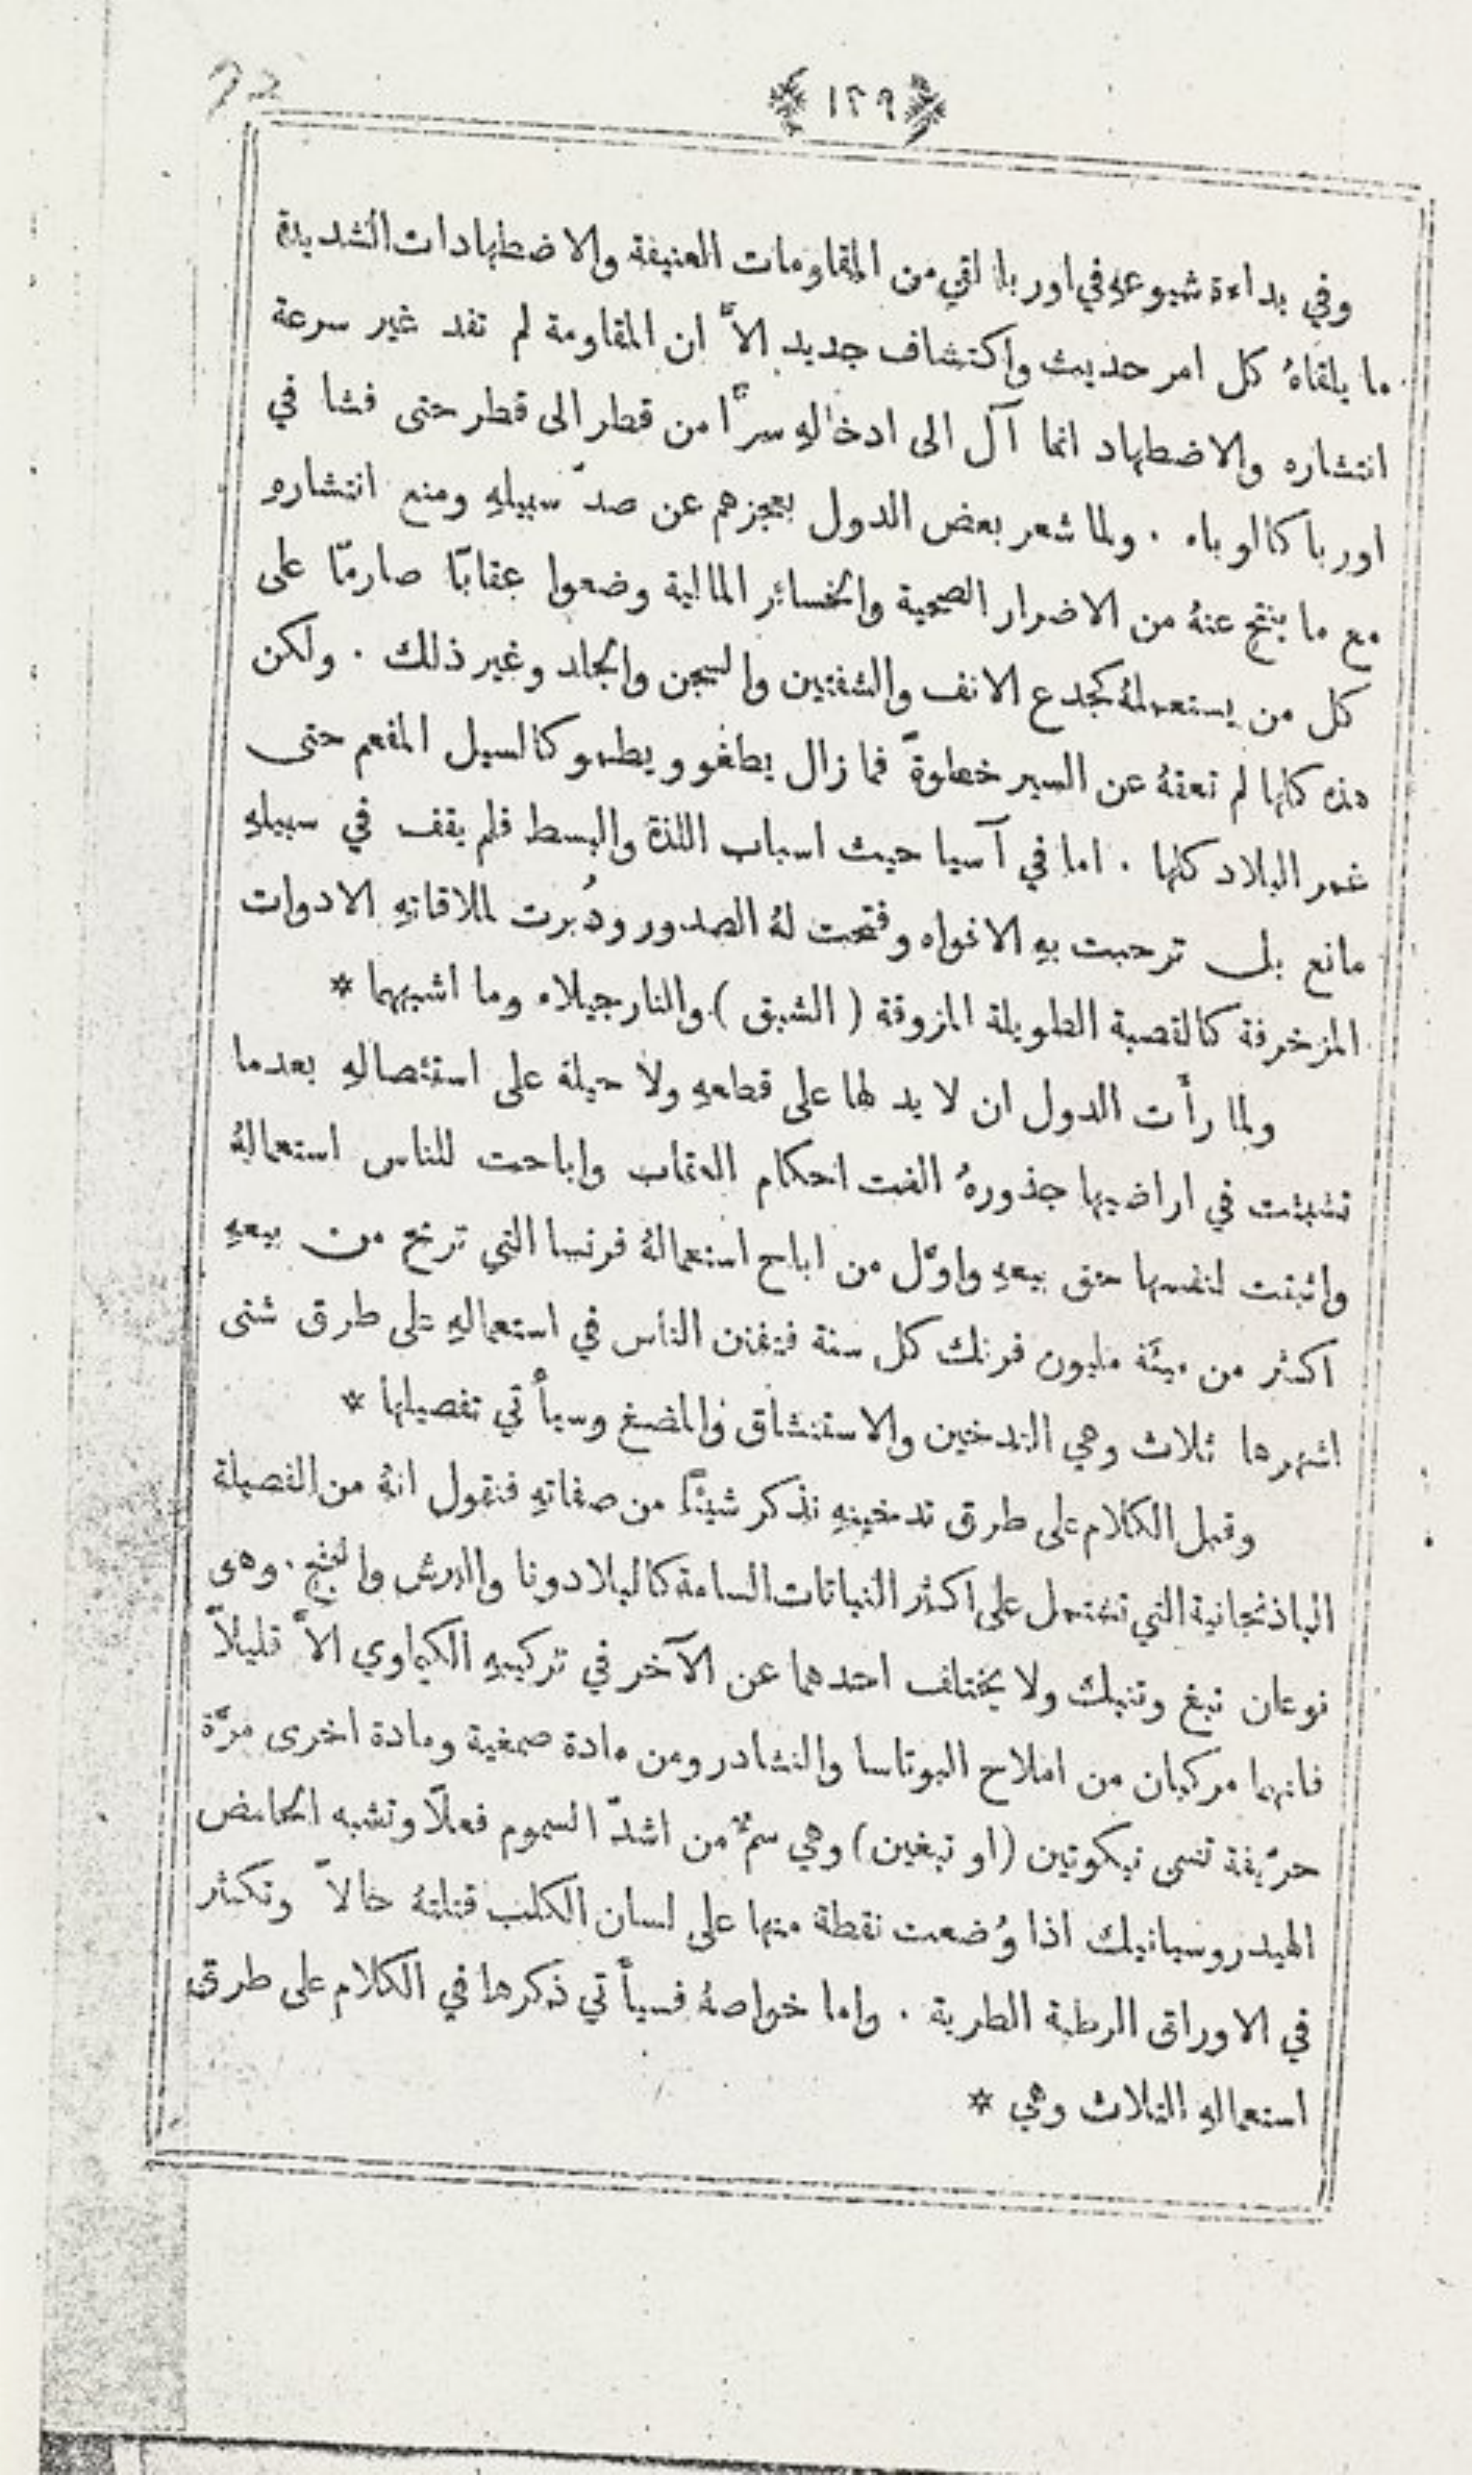 72
﴿ ١٢٩ ﴾
وفي بداءة شيوعهِ في اوربا لقي من المقاومات العنيفة والاضطهادات الشديدة
ما يلقاهُ كل امر حديث واكتشاف جديد الاَّ ان المقاومة لم تفد غير سرعة
انتشاره والاضطهاد انما آل الى ادخالهِ سرًّا من قطر الى قطر حتى فشا في
اوربا كالوباء . ولما شعر بعض الدول بعجزهم عن صدّ سبيلهِ ومنع انتشارهِ
مع ما ينتج عنهُ من الاضرار الصحية والخسائر المالية وضعوا عقابًا صارمًا على
كل من يستعملهُ كجدع الانف والشفتين والسجن والجلد وغير ذلك . ولكن
هذه كلها لم تعقهُ عن السير خطوةً فما زال يطفو ويطمو كالسيل المفعم حتى
غمر البلاد كلها . اما في آسيا حيث اسباب اللذة والبسط فلم يقف في سبيلهِ
مانع بل ترحبت بهِ الافواه وفتحت لهُ الصدور ودُبرت لملاقاتهِ الادوات
المزخرفة كالقصبة الطويلة المزوقة ( الشبق ) والنارجيلاء وما اشبههما *
ولما رأَت الدول ان لا يد لها على قطعهِ ولا حيلة على استئصالهِ بعدما
تشبثت في اراضيها جذورهُ الغت احكام العقاب واباحت للناس استعمالهُ
واثبتت لنفسها حق بيعهِ واوّل من اباح استعمالهُ فرنسا التي تربح من بيعهِ
اكثر من مِئَة مليون فرنك كل سنة فتفنن الناس في استعمالهِ على طرق شتى
اشهرها ثلاث وهي التدخين والاستنشاق والمضغ وسيأتي تفصيلها *
وقبل الكلام على طرق تدخينهِ نذكر شيئًا من صفاتهِ فنقول انهُ من الفصيلة
الباذنجانية التي تشتمل على اكثر النباتات السامة كالبلادونا والبنج . وهو
نوعان تبغ وتنبك ولا يختلف احدهما عن الآخر في تركيبهِ الكيماوي الاَّ قليلاً
فانهما مركبان من املاح البوتاسا والنشادر ومن مادة صمغية ومادة اخرى مرَّة
حرّيفة تسمى نيكوتين (او تبغين) وهي سمٌّ من اشدّ السموم فعلاً وتشبه الحامض
الهيدروسيانيك اذا وُضعت نقطة منها على لسان الكلب قتلتهُ حالاً وتكثر
في الاوراق الرطبة الطرية . واما خواصهُ فسيأتي ذكرها في الكلام على طرق
استعمالهِ الثلاث وهي *